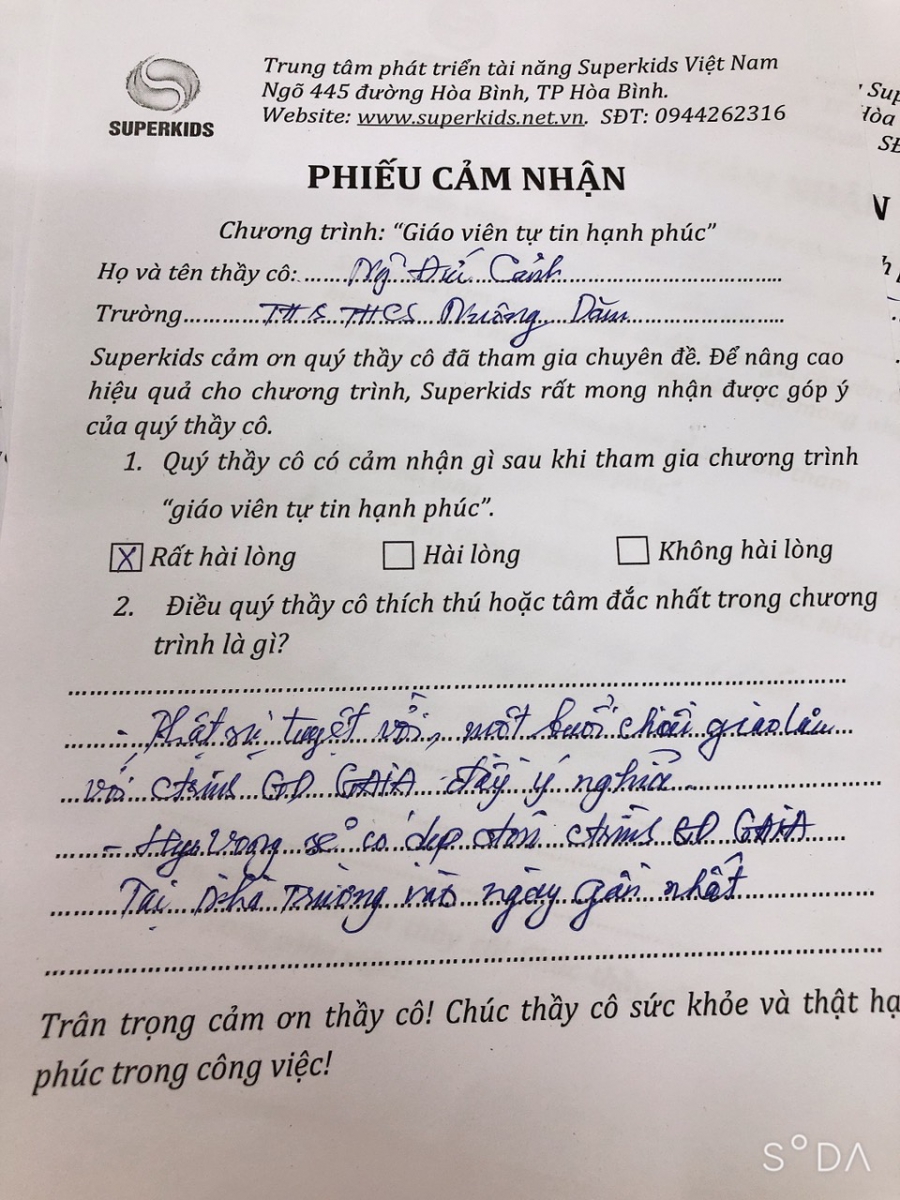 SUPERKIDS
Trung tâm phát triển tài năng Superkids Việt Nam
Ngõ 445 đường Hòa Bình, TP Hòa Bình.
Website: www.superkids.net.vn. SĐT: 0944262316
PHIẾU CẢM NHẬN
Chương trình: “Giáo viên tự tin hạnh phúc”
Họ và tên thầy cô: Cảnh
Trường TH & THCS
Superkids cảm ơn quý thầy cô đã tham gia chuyên đề. Để nâng cao
hiệu quả cho chương trình, Superkids rất mong nhận được góp ý
của quý thầy cô.
1. Quý thầy cô có cảm nhận gì sau khi tham gia chương trình
“giáo viên tự tin hạnh phúc”.
X Rất hài lòng Hài lòng Không hài lòng
2. Điều quý thầy cô thích thú hoặc tâm đắc nhất trong chương
trình là gì?
- Thật sự tuyệt vời, một buổi giao lưu
với GD GAIA đầy ý nghĩa
- Hy vọng sẽ có dịp GD GAIA
Tại nhà trường vào ngày gần nhất
Trân trọng cảm ơn thầy cô! Chúc thầy cô sức khỏe và thật hạ
phúc trong công việc!
SODA